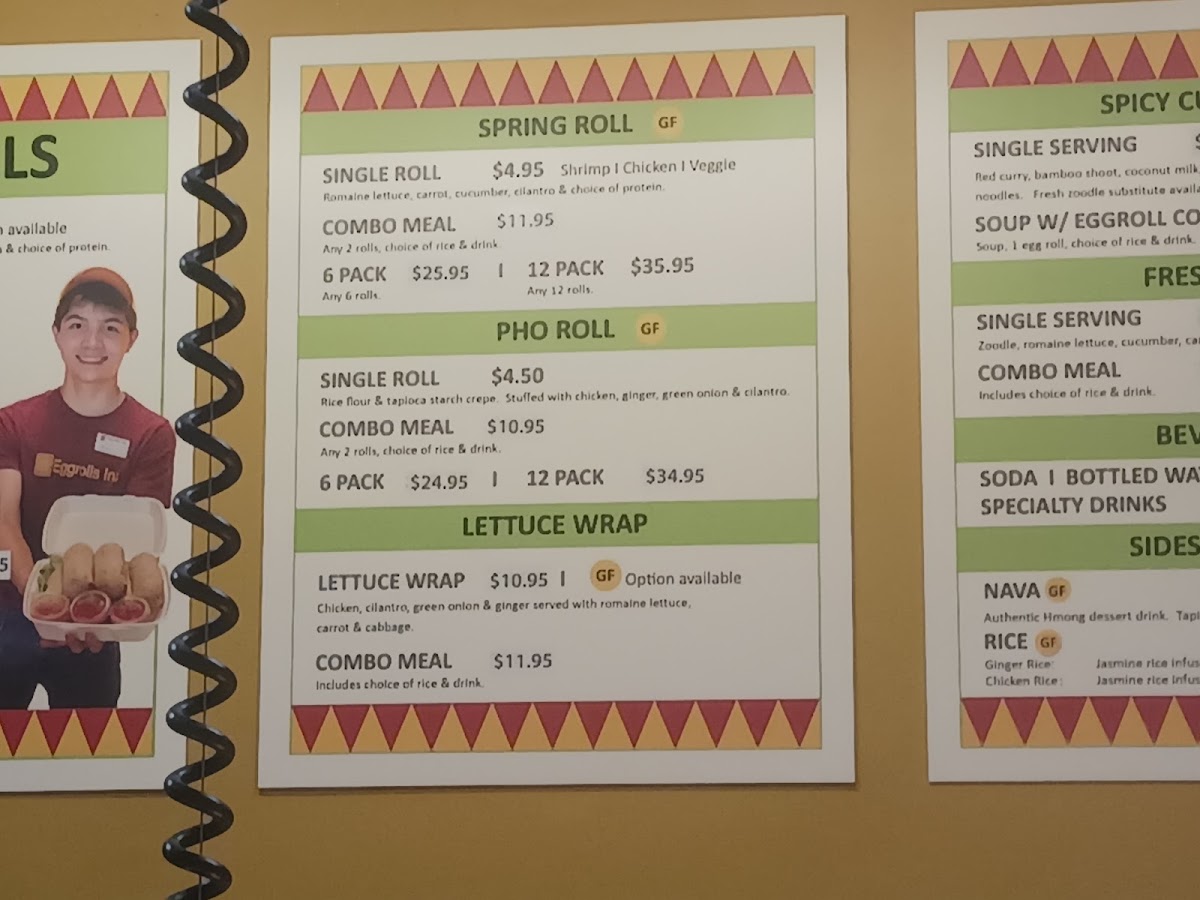 LS
available
& choice of protein.
Eggrolls Inc
5
SPRING ROLL GF
SINGLE ROLL $4.95 Shrimp I Chicken I Veggie
Romaine lettuce, carrot, cucumber, cilantro & choice of protein.
COMBO MEAL $11.95
Any 2 rolls, choice of rice & drink.
6 PACK $25.95 I 12 PACK $35.95
Any 6 rolls. Any 12 rolls.
PHO ROLL GF
SINGLE ROLL $4.50
Rice flour & tapioca starch crepe. Stuffed with chicken, ginger, green onion & cilantro.
COMBO MEAL $10.95
Any 2 rolls, choice of rice & drink.
6 PACK $24.95 I 12 PACK $34.95
LETTUCE WRAP
LETTUCE WRAP $10.95 I GF Option available
Chicken, cilantro, green onion & ginger served with romaine lettuce,
carrot & cabbage.
COMBO MEAL $11.95
Includes choice of rice & drink.
SPICY CU
SINGLE SERVING $
Red curry, bamboo shoot, coconut milk,
noodles. Fresh zoodle substitute availa
SOUP W/ EGGROLL CO
Soup, 1 egg roll, choice of rice & drink.
FRES
SINGLE SERVING
Zoodle, romaine lettuce, cucumber, ca
COMBO MEAL
Includes choice of rice & drink.
BEV
SODA I BOTTLED WA
SPECIALTY DRINKS
SIDES
NAVA GF
Authentic Hmong dessert drink. Tapi
RICE GF
Ginger Rice: Jasmine rice infus
Chicken Rice: Jasmine rice infus